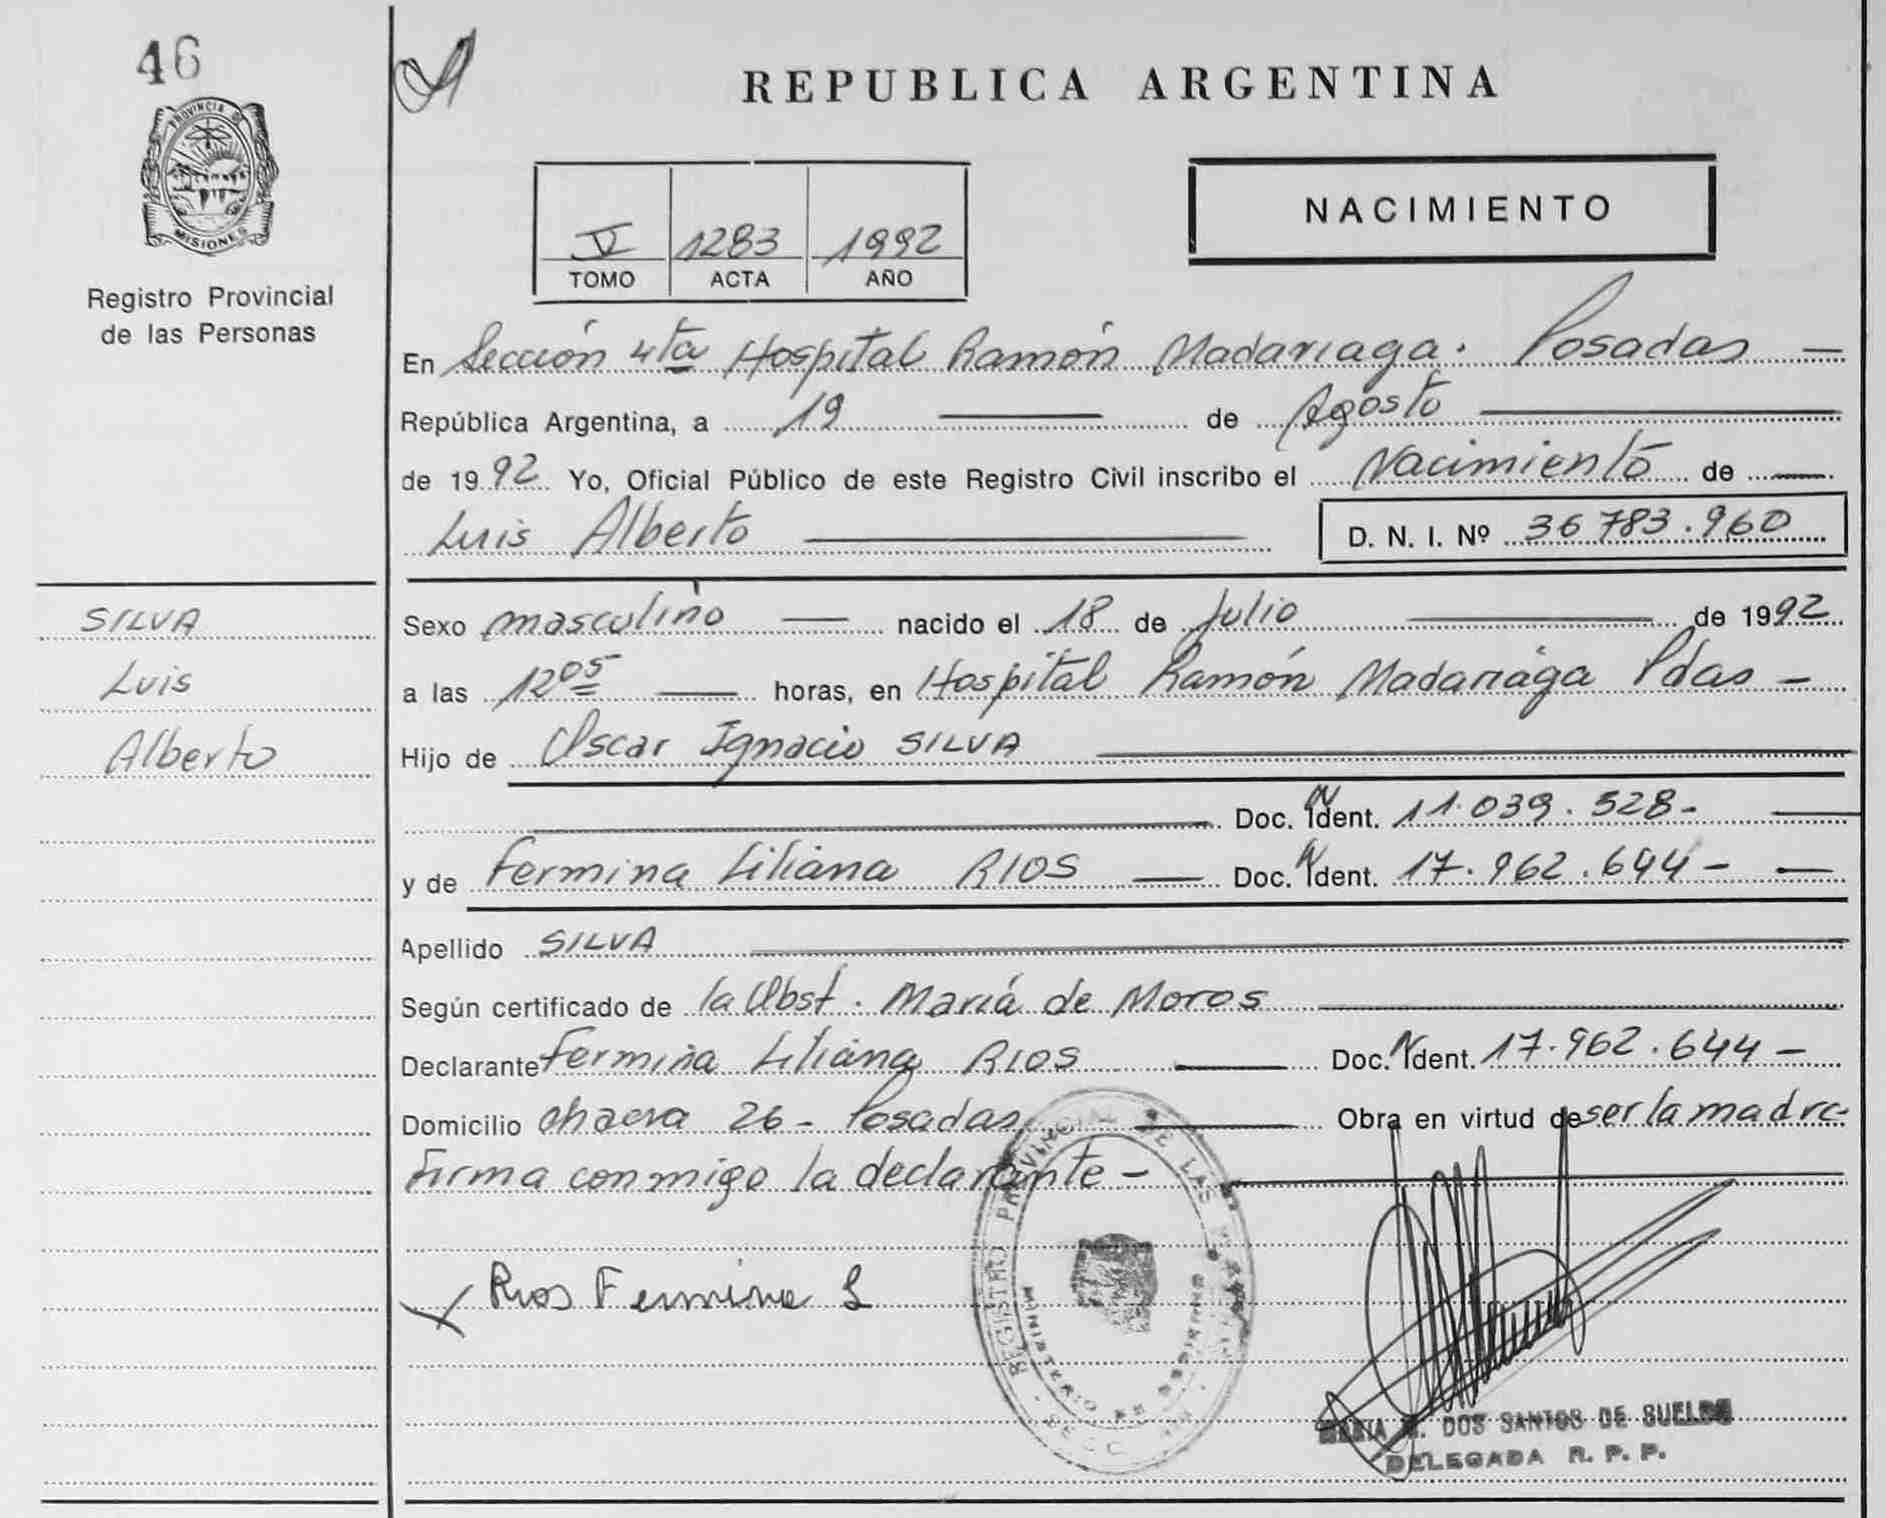 46
PROVINCIA DE
MISIONES
Registro Provincial
de las Personas
REPUBLICA ARGENTINA
NACIMIENTO
V 1283 1992
TOMO ACTA AÑO
En Sección 4ta Hospital Ramón Madariaga. Posadas —
República Argentina, a 19 de Agosto
de 1992 Yo, Oficial Público de este Registro Civil inscribo el Nacimiento de
Luis Alberto D. N. I. Nº 36783.960
SILVA
Luis
Alberto
Sexo masculino nacido el 18 de Julio de 1992
a las 12 05 horas, en Hospital Ramón Madariaga Pdas -
Hijo de Oscar Ignacio SILVA
Doc. Ident. 11.039.528-
y de Fermina Liliana RIOS Doc. Ident. 17.962.644-
Apellido SILVA
Según certificado de la Obst. María de Moros
Declarante Fermina Liliana RIOS Doc. Ident. 17.962.644-
Domicilio chacra 26- Posadas Obra en virtud de ser la madre
Firma conmigo la declarante-
Rios Fermina L
REGISTRO PROVINCIAL DE LAS
MINISTERIO DE GOBIERNO
SECC.
DOS SANTOS DE SUELDO
DELEGADA R. P. P.